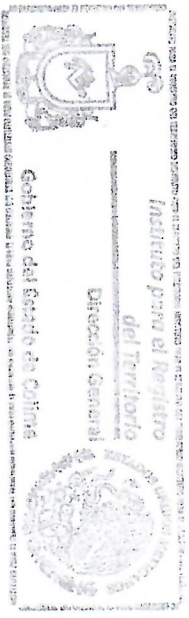 Instituto para el Registro
del Territorio
Dirección General
Gobierno del Estado de Colima